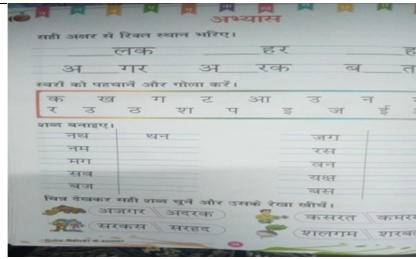 अभ्यास
सही अक्षर से रिक्त स्थान भरिए।
लक हर ह
अ गर अ रक ब त
स्वरों को पहचानें और गोला करें।
क ख ग ट आ उ न
र उ ठ श प इ ज ई
शब्द बनाइए।
नथ थन जग
नम रस
मग वन
सब यक्ष
बज बस
चित्र देखकर सही शब्द चुनें और उसके रेखा खींचें।
अजगर अदरक कसरत
सरकस सरहद शलगम